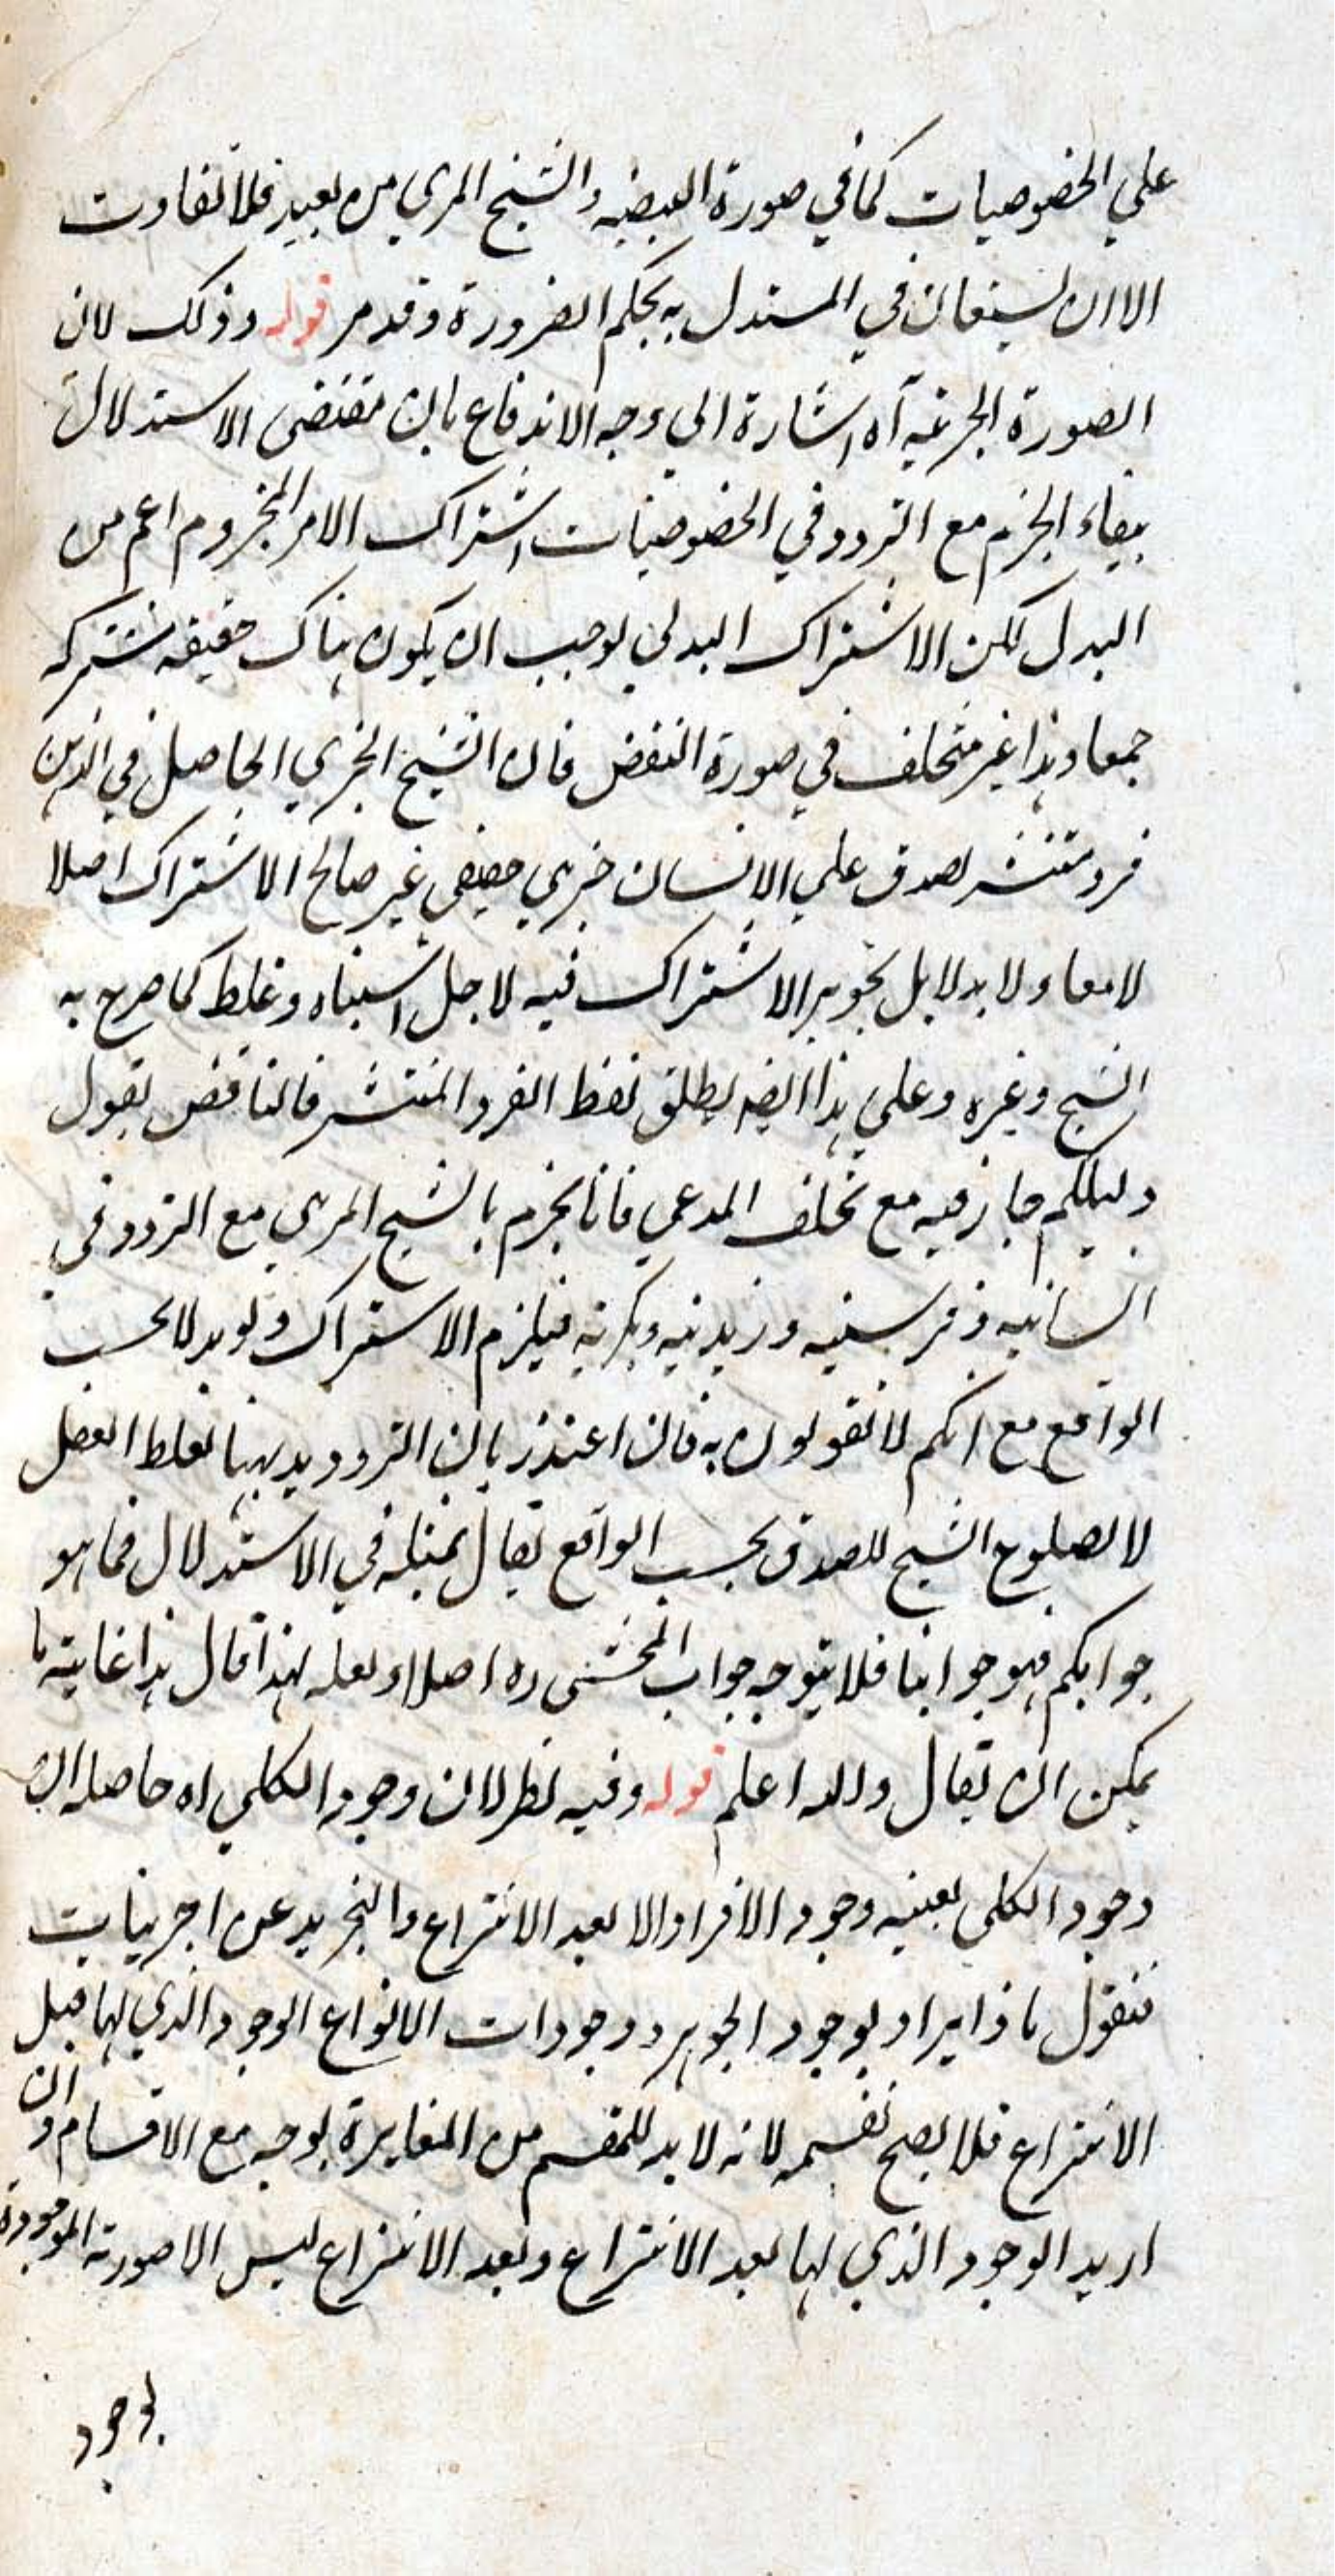 علي الخصوصيات كما في صورة البيضه والشبح المري من بعيد فلا تفاوت
الا ان يستعان في المستدل به بحكم الضرورة وقد مر قوله وذلك لان
الصورة الجزئية آه اشارة الى وجه الاندفاع بان مقتضى الاستدلال
ببقاء الجزم مع التردد في الخصوصيات اشتراك الامر المجزوم اعم من
البدل لكن الاشتراك البدلي يوجب ان يكون هناك حقيقه مشتركه
جمعا وهذا غير متخلف في صورة النقض فان الشبح الجزي الحاصل في الذهن
فرد منتشر يصدق علي الانسان جزي حقيقي غير صالح الاشتراك اصلا
لا معا ولا بدلا بل تجويز الاشتراك فيه لاجل اشتباه وغلط كما صرح به
الشيخ وغيره وعلي هذا ايضه يطلق لفظ الفرد المنتشر فالناقض يقول
دليلكم جار فيه مع تخلف المدعي فانا نجزم بالشبح المري مع التردد في
انسانيه وفرسيه وزيديه وبكريه فيلزم الاشتراك ولو بدلا بحسب
الواقع مع انكم لا تقولون به فان اعتذر بان الترديد ههنا لغلط العقل
لا لصلوح الشبح للصدق بحسب الواقع يقال بمثله في الاستدلال فما هو
جوابكم فهو جوابنا فلا يتوجه جواب المحشى ره اصلا ولعله لهذا قال هذا غاية ما
يمكن ان يقال والله اعلم قوله وفيه نظر لان وجود الكلي اه حاصله ان
وجود الكلي بعينه وجود الافراد الا بعد الانتزاع والتجريد عن الجزئيات
فنقول ماذا يراد بوجود الجوهر ووجودات الانواع الوجود الذي لها قبل
الانتزاع فلا يصح تقسيمه لانه لا بد للمقسم من المغايرة بوجه مع الاقسام وان
اريد الوجود الذي لها بعد الانتزاع وبعد الانتزاع ليس الا صورته الموجودة
بوجود